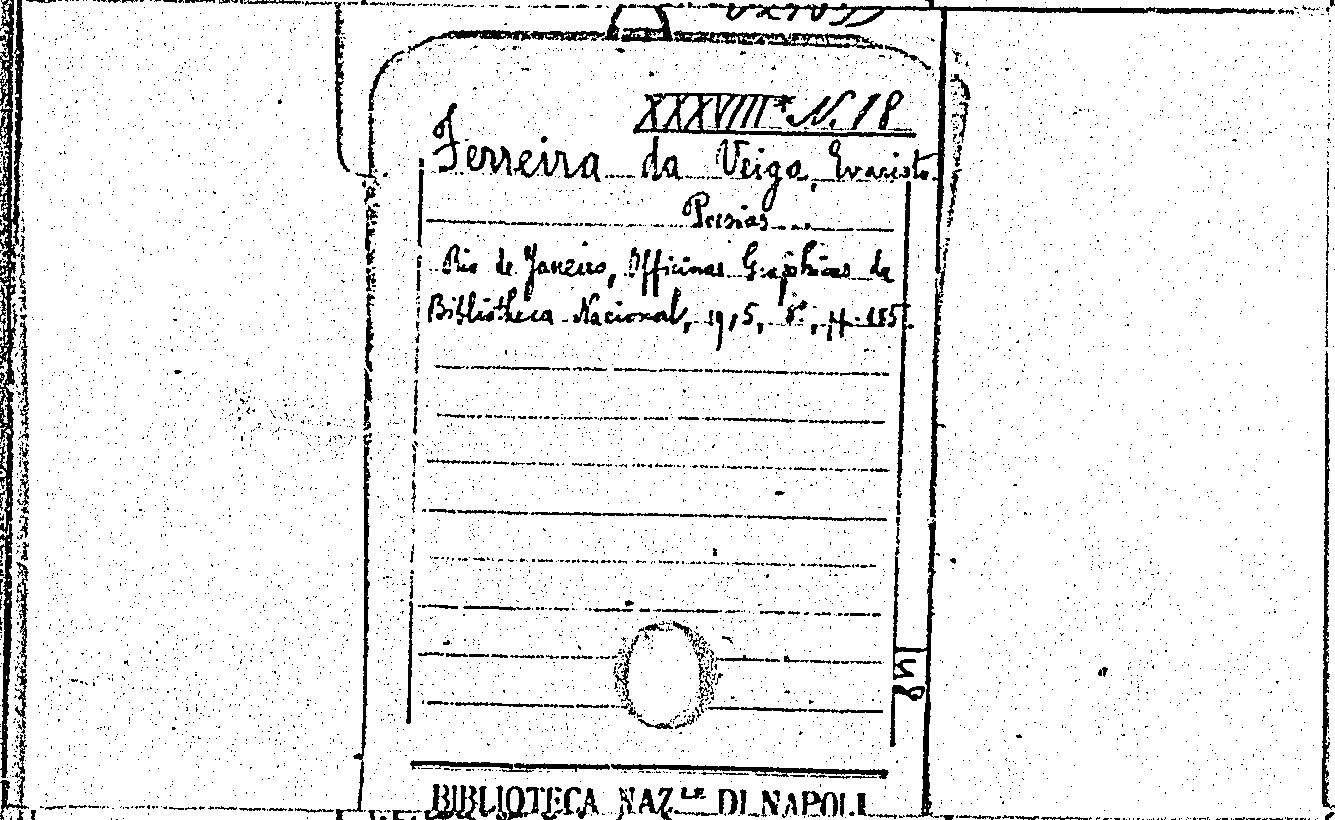 XXXVIII* N. 18
Ferreira da Veiga, Evaristo
Poesias...
Rio de Janeiro, Officinas Graphicas da
Bibliotheca Nacional, 1915, 8°, pp. 185.
BIBLIOTECA NAZ.LE DI NAPOLI